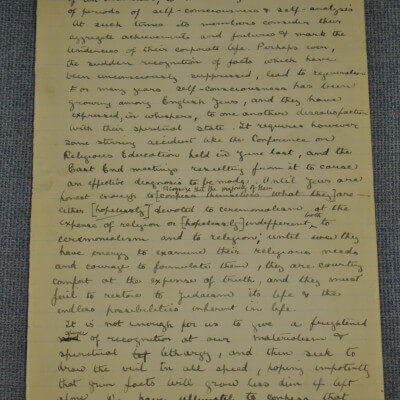 of periods of self-consciousness & self-analysis
At such times its members consider their
aggregate achievements and failures & mark the
tendencies of their corporate life. Perhaps even,
the sudden recognition of facts which have
been unconsciously suppressed, lead to regeneration
For many years self-consciousness has been
growing among English Jews, and they have
expressed, in whispers, to one another dissatisfaction
with their spiritual state. It requires however
some stirring accident like the Conference on
Religious Education held in June last, and the
East End meetings resulting from it to cause
an effective diagnosis to be made. Until Jews are
recognise that the majority of them
honest enough to confess themselves what they are —
either [hopelessly] devoted to ceremonialism at the
expense of religion or [hopelessly] indifferent both to
ceremonialism and to religion; until even they
have energy to examine their religious needs
and courage to formulate them, they are courting
comfort at the expense of truth, and they must
fail to restore to Judaism its life & the
endless possibilities inherent in life.
It is not enough for us to give a frightened
glance
of recognition at our materialism &
spiritual lethargy, and then seek to
draw the veil in all speed, hoping impotently
that grim facts will grow less dim if left
alone. We have ultimately to confess that